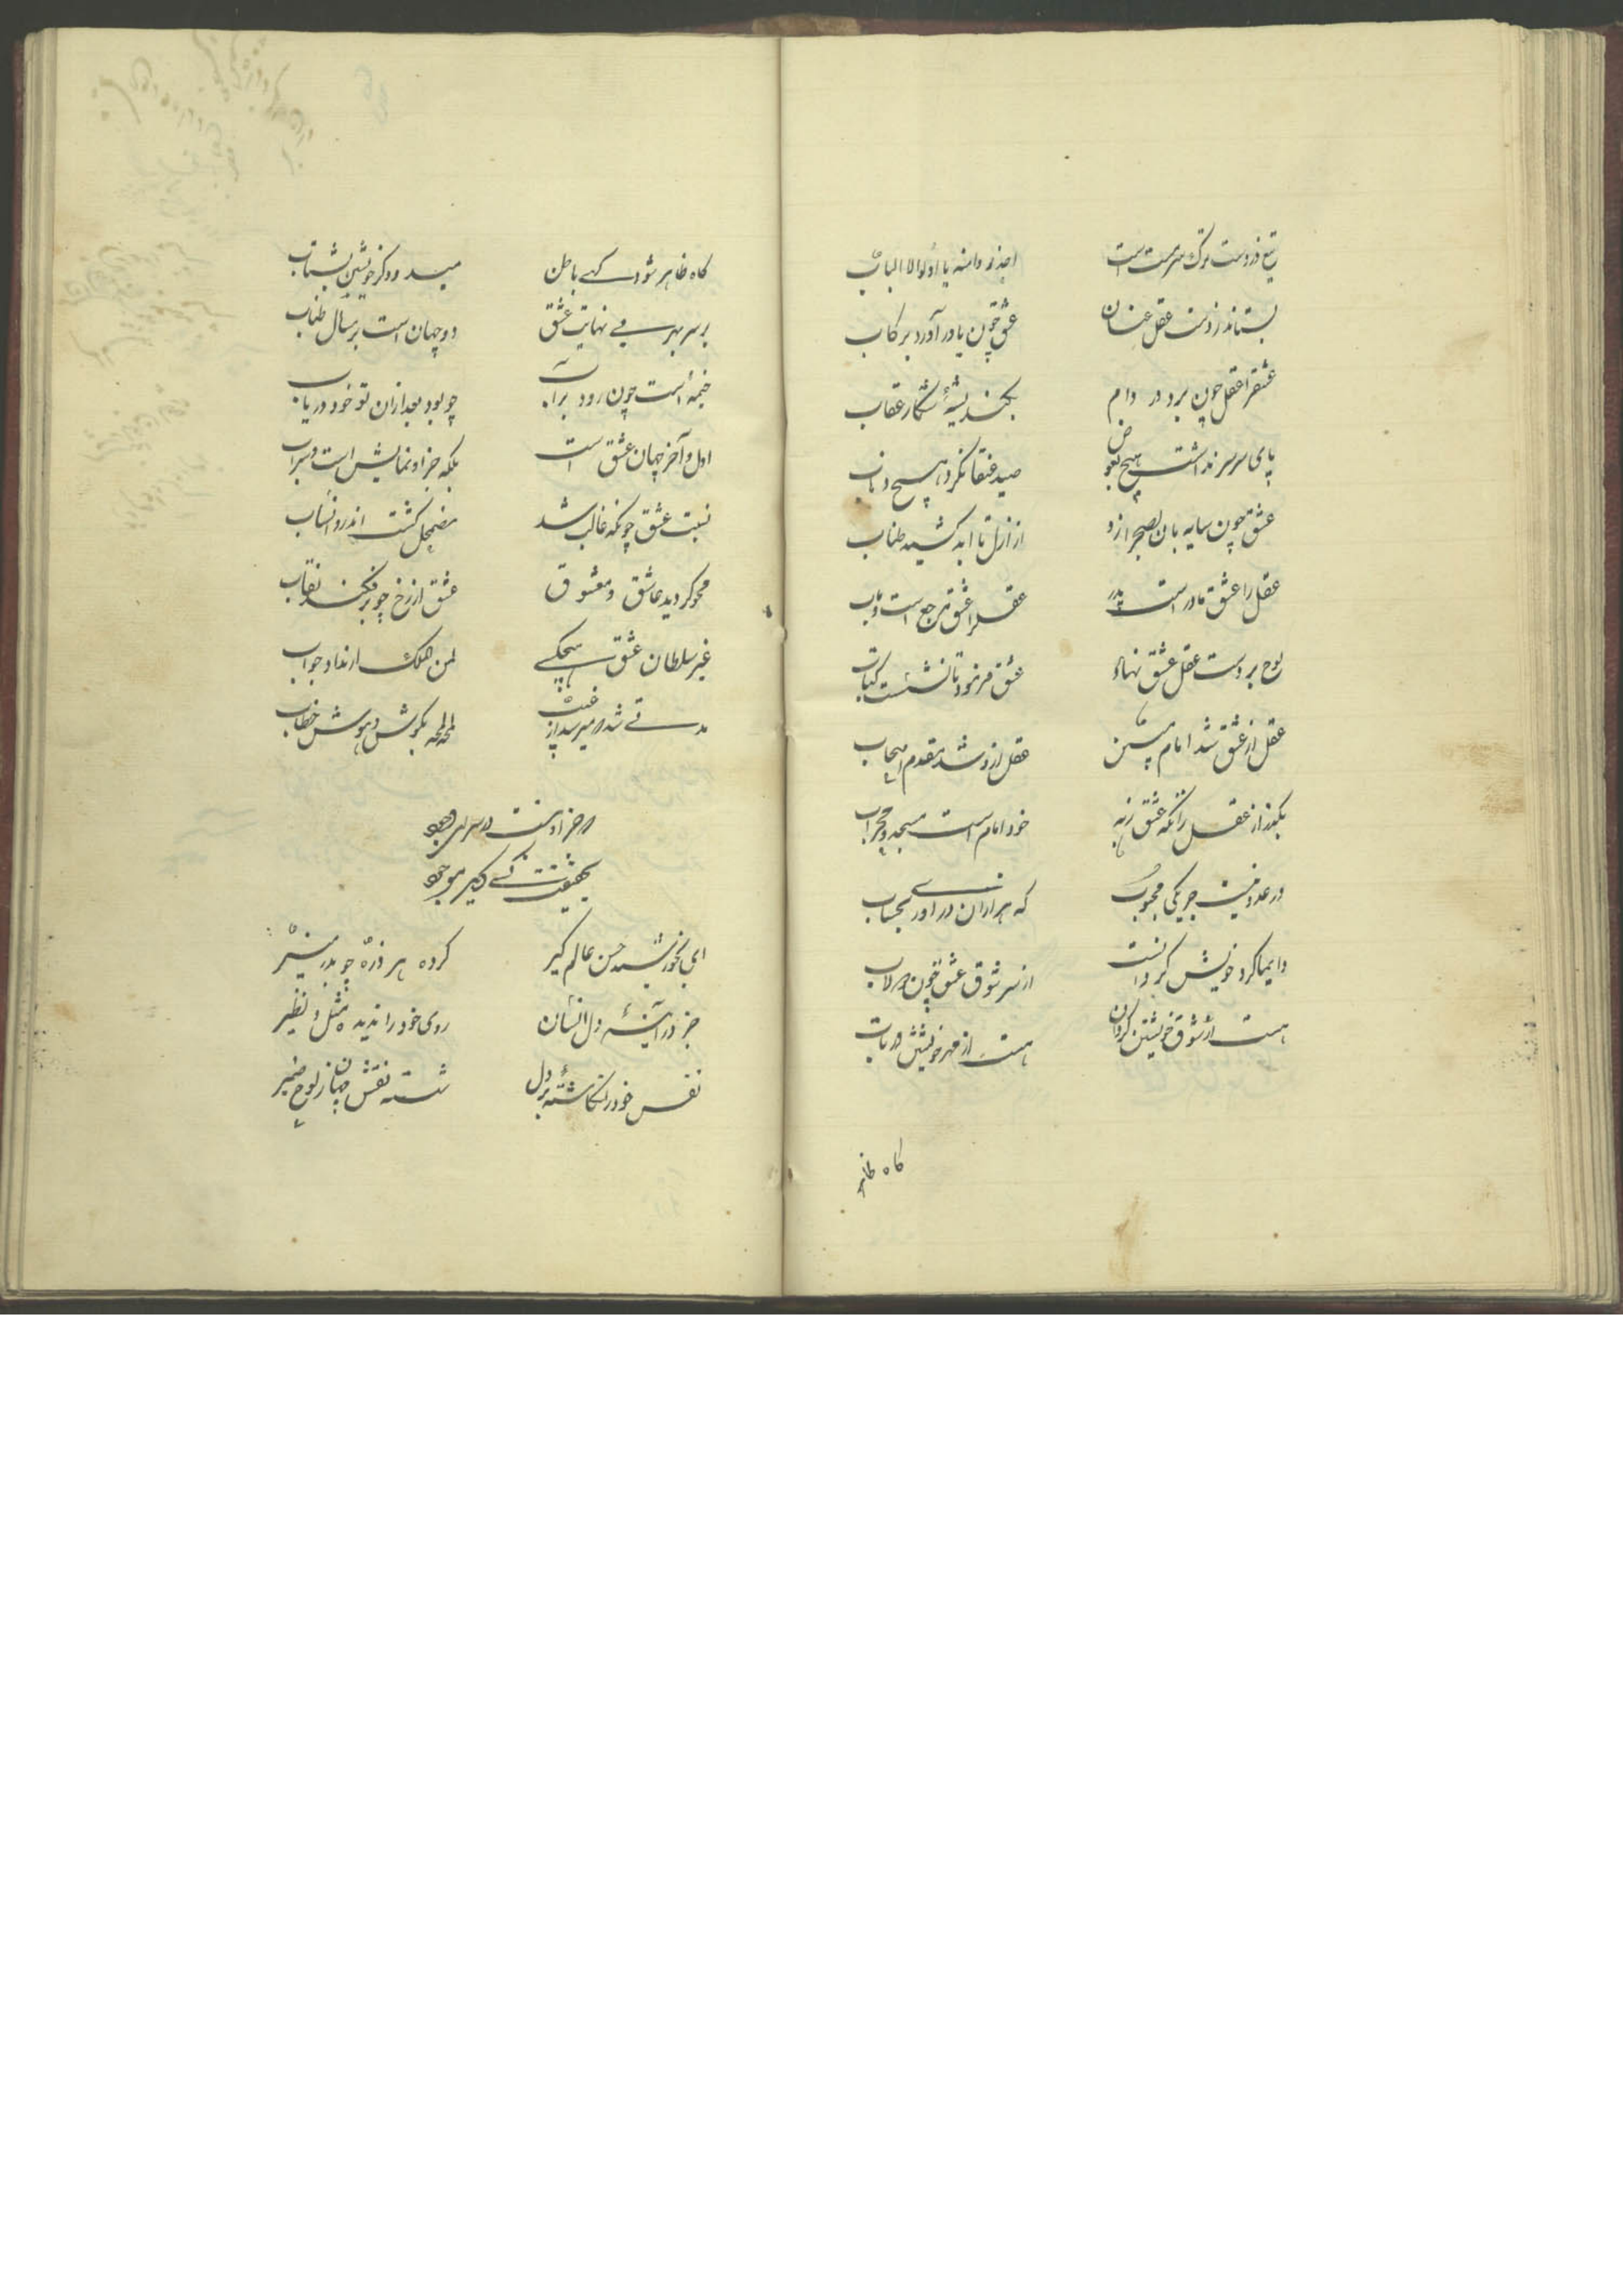 تیغ در دست ترک سرمست است احذروا منه یا اولوا الالباب
بستاند ز دست عقل عنان عشق چون پا در آورد برکاب
عشق را عقل چون برد در دام نکند پشهٔ شکار عقاب
پای سر سر نداشت هیچ بعوض صید عنقا نکرد هیچ ذباب
عشق چون سایه بان بصحرا زد از ازل تا ابد کشید طناب
عقل را عشق مادر است و پدر عقل را عشق مرجع است و مآب
لوح بر دست عقل عشق نهاد عشق فرمود تا نشست کتاب
عقل از عشق شد امام مبین عقل ازو شد مقدم اصحاب
بگذر از عقل زانکه عشق زند خود امام است مسجد و محراب
در عدد نیست جز یکی محبوب که هزاران در آوری بحساب
دایما گرد خویش گردانست از سر شوق عشق چون دولاب
هست از شوق خویشتن گردان هست از مهر خویش در تب و تاب
گاه ظاهر
گاه ظاهر شود گهی باطن میدود گرد خویشتن بشتاب
بر سر بحر بی نهایت عشق دو جهان است بر مثال حباب
خیمهٔ است چون رود بر آب چو بود بعد ازان تو خود دریاب
اول و آخر جهان عشق است بلکه جز او نمایش است و سراب
نسبت عشق چونکه غالب شد مضمحل گشت اندرو انساب
محو گردید عاشق و معشوق عشق از رخ چو بر فکند نقاب
غیر سلطان عشق هیچکسی لمن الملک را نداد جواب
مدتی شد که میرسد از غیب لمحه لمحه بگوش هوش خطاب
که جز او نیست در سرای وجود
بحقیقت کسی دگر موجود
ای بخورشید حسن عالم گیر کرده هر ذره چو بدر منیر
جز در آئینهٔ دل انسان روی خود را ندیده مثل و نظیر
نقش خود را نگاشته بر دل شسته نقش جهان ز لوح ضمیر